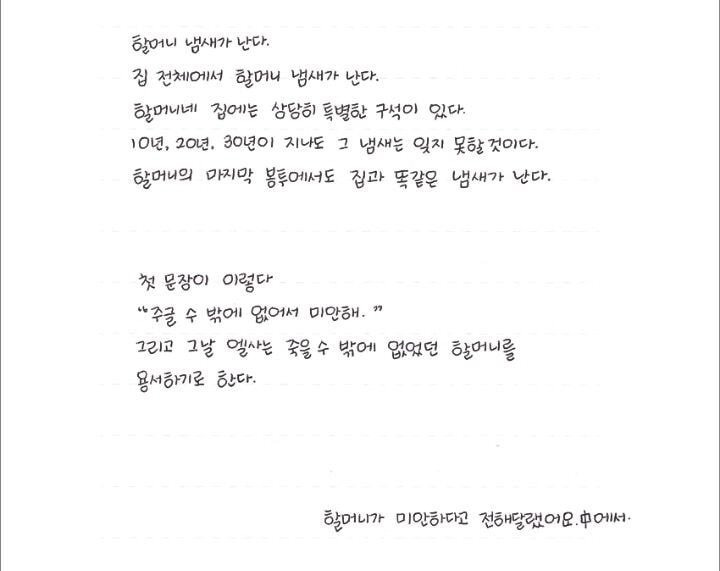 할머니 냄새가 난다.
집 전체에서 할머니 냄새가 난다.
할머니네 집에는 상당히 특별한 구석이 있다.
10년, 20년, 30년이 지나도 그 냄새는 잊지 못할것이다.
할머니의 마지막 봉투에서도 집과 똑같은 냄새가 난다.
첫 문장이 이렇다
“주글 수 밖에 없어서 미안해.”
그리고 그날 엘사는 죽을 수 밖에 없었던 할머니를
용서하기로 한다.
할머니가 미안하다고 전해달랬어요.中에서.